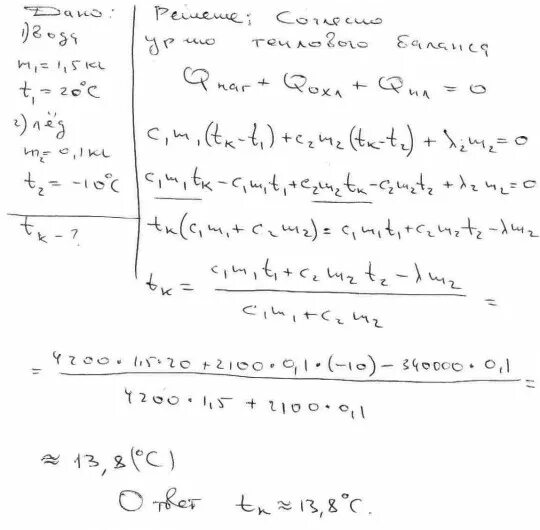 Дано:
1) Вода
m₁ = 1,5 кг
t₁ = 20°C
2) лёд
m₂ = 0,1 кг
t₂ = -10°C
tк - ?
Решение: Согласно
ур-ию теплового баланса
Qнаг + Qохл + Qпл = 0
c₁m₁(tк-t₁) + c₂m₂(tк-t₂) + λ₂m₂ = 0
c₁m₁tк - c₁m₁t₁ + c₂m₂tк - c₂m₂t₂ + λ₂m₂ = 0
tк(c₁m₁ + c₂m₂) = c₁m₁t₁ + c₂m₂t₂ - λm₂
tк = (c₁m₁t₁ + c₂m₂t₂ - λm₂) / (c₁m₁ + c₂m₂) =
= (4200 · 1,5 · 20 + 2100 · 0,1 · (-10) - 340000 · 0,1) / (4200 · 1,5 + 2100 · 0,1) =
≈ 13,8 (°C)
Ответ tк ≈ 13,8°C.